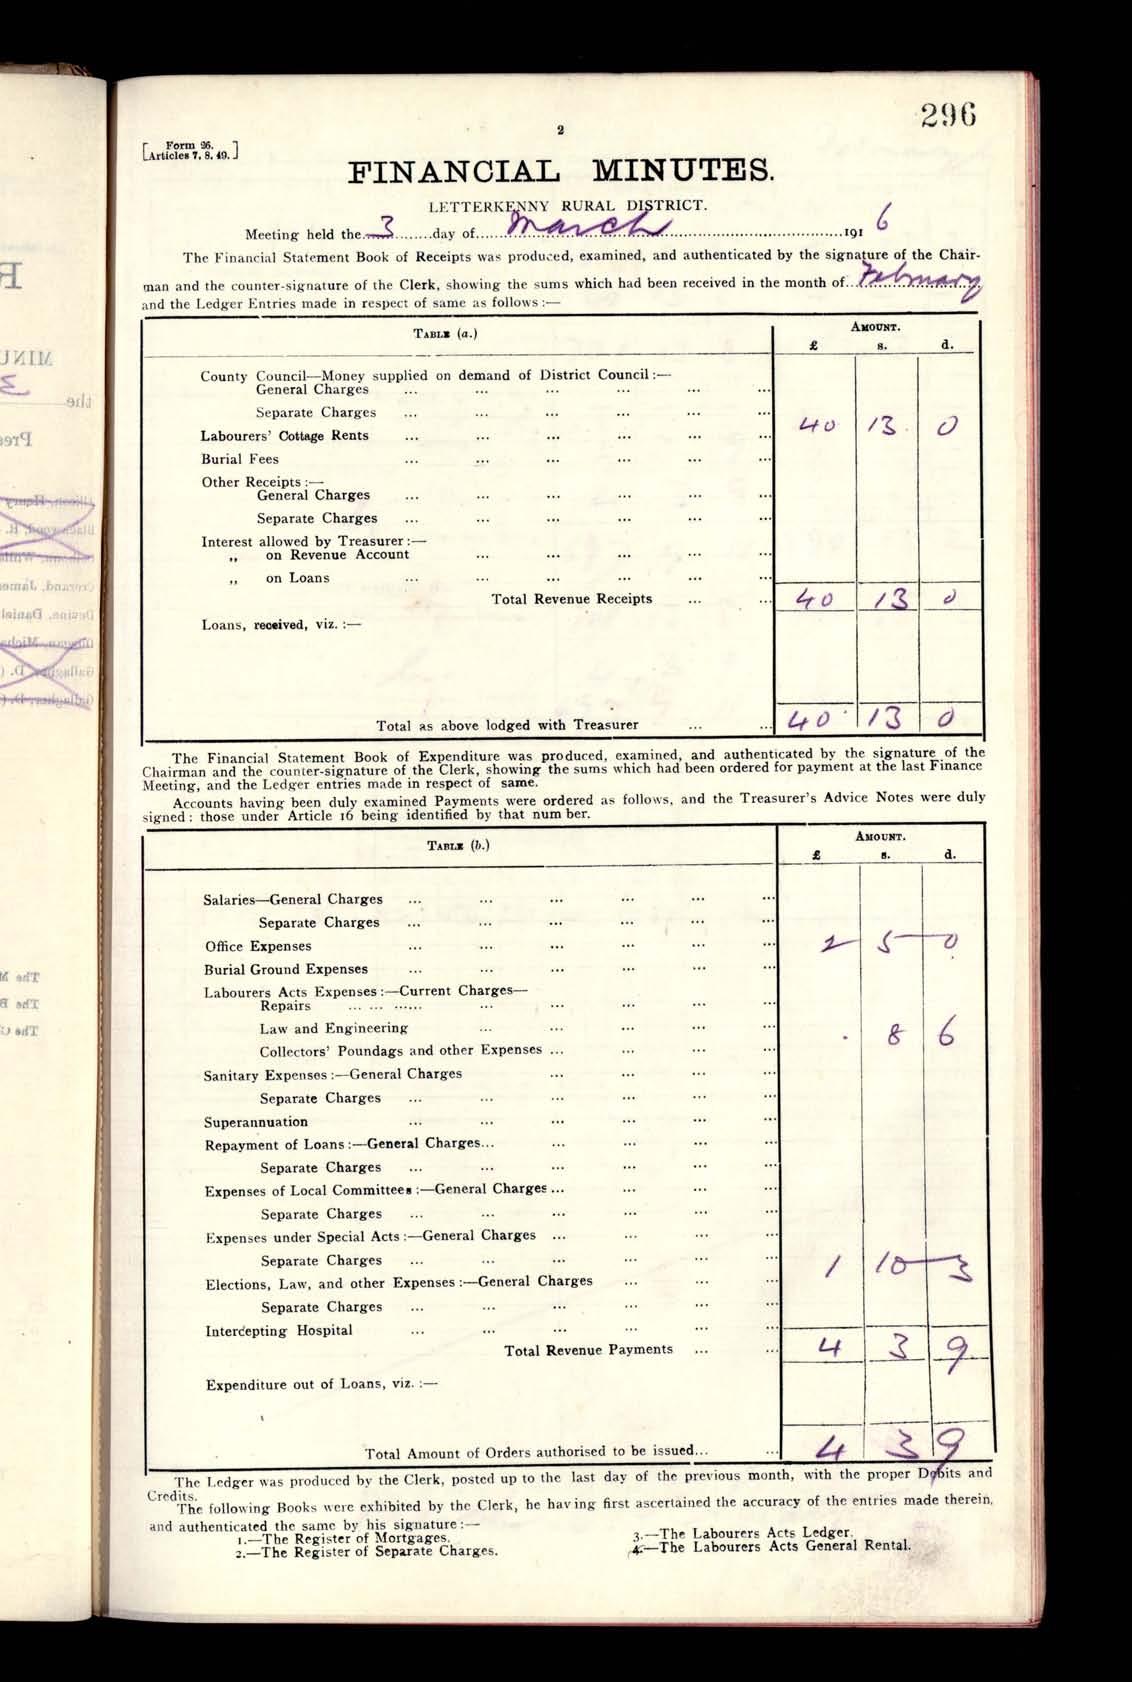 296
2
[Form 26.
Articles 7, 8, 49.]
FINANCIAL MINUTES.
LETTERKENNY RURAL DISTRICT.
Meeting held the 3 day of March 1916
The Financial Statement Book of Receipts was produced, examined, and authenticated by the signature of the Chair-
man and the counter-signature of the Clerk, showing the sums which had been received in the month of February
and the Ledger Entries made in respect of same as follows :—
TABLE (a.) AMOUNT.
£ s. d.
County Council—Money supplied on demand of District Council :—
General Charges ... ... ... ... ... ...
Separate Charges ... ... ... ... ... ...
Labourers' Cottage Rents ... ... ... ... ... ... 40 13 0
Burial Fees ... ... ... ... ... ...
Other Receipts :—
General Charges ... ... ... ... ... ...
Separate Charges ... ... ... ... ... ...
Interest allowed by Treasurer :—
„ on Revenue Account ... ... ... ... ...
„ on Loans ... ... ... ... ... ...
Total Revenue Receipts ... ... 40 13 0
Loans, received, viz. :—
Total as above lodged with Treasurer ... ... 40 13 0
The Financial Statement Book of Expenditure was produced, examined, and authenticated by the signature of the
Chairman and the counter-signature of the Clerk, showing the sums which had been ordered for payment at the last Finance
Meeting, and the Ledger entries made in respect of same.
Accounts having been duly examined Payments were ordered as follows, and the Treasurer's Advice Notes were duly
signed : those under Article 16 being identified by that num ber.
TABLE (b.) AMOUNT.
£ s. d.
Salaries—General Charges ... ... ... ... ... ...
Separate Charges ... ... ... ... ... ...
Office Expenses ... ... ... ... ... ... 2 5 0
Burial Ground Expenses ... ... ... ... ... ...
Labourers Acts Expenses :—Current Charges—
Repairs ... ... ...... ... ... ... ... ...
Law and Engineering ... ... ... ... ... . 8 6
Collectors' Poundags and other Expenses ... ... ... ...
Sanitary Expenses :—General Charges ... ... ... ...
Separate Charges ... ... ... ... ... ...
Superannuation ... ... ... ... ... ...
Repayment of Loans :—General Charges... ... ... ... ...
Separate Charges ... ... ... ... ... ...
Expenses of Local Committees :—General Charges ... ... ... ...
Separate Charges ... ... ... ... ... ...
Expenses under Special Acts :—General Charges ... ... ... ...
Separate Charges ... ... ... ... ... ... 1 10 3
Elections, Law, and other Expenses :—General Charges ... ... ...
Separate Charges ... ... ... ... ... ...
Intercepting Hospital ... ... ... ... ... ...
Total Revenue Payments ... ... 4 3 9
Expenditure out of Loans, viz. :—
Total Amount of Orders authorised to be issued... ... 4 3 9
The Ledger was produced by the Clerk, posted up to the last day of the previous month, with the proper Debits and
Credits.
The following Books were exhibited by the Clerk, he having first ascertained the accuracy of the entries made therein,
and authenticated the same by his signature :—
1.—The Register of Mortgages.
2.—The Register of Separate Charges.
3.—The Labourers Acts Ledger.
4.—The Labourers Acts General Rental.